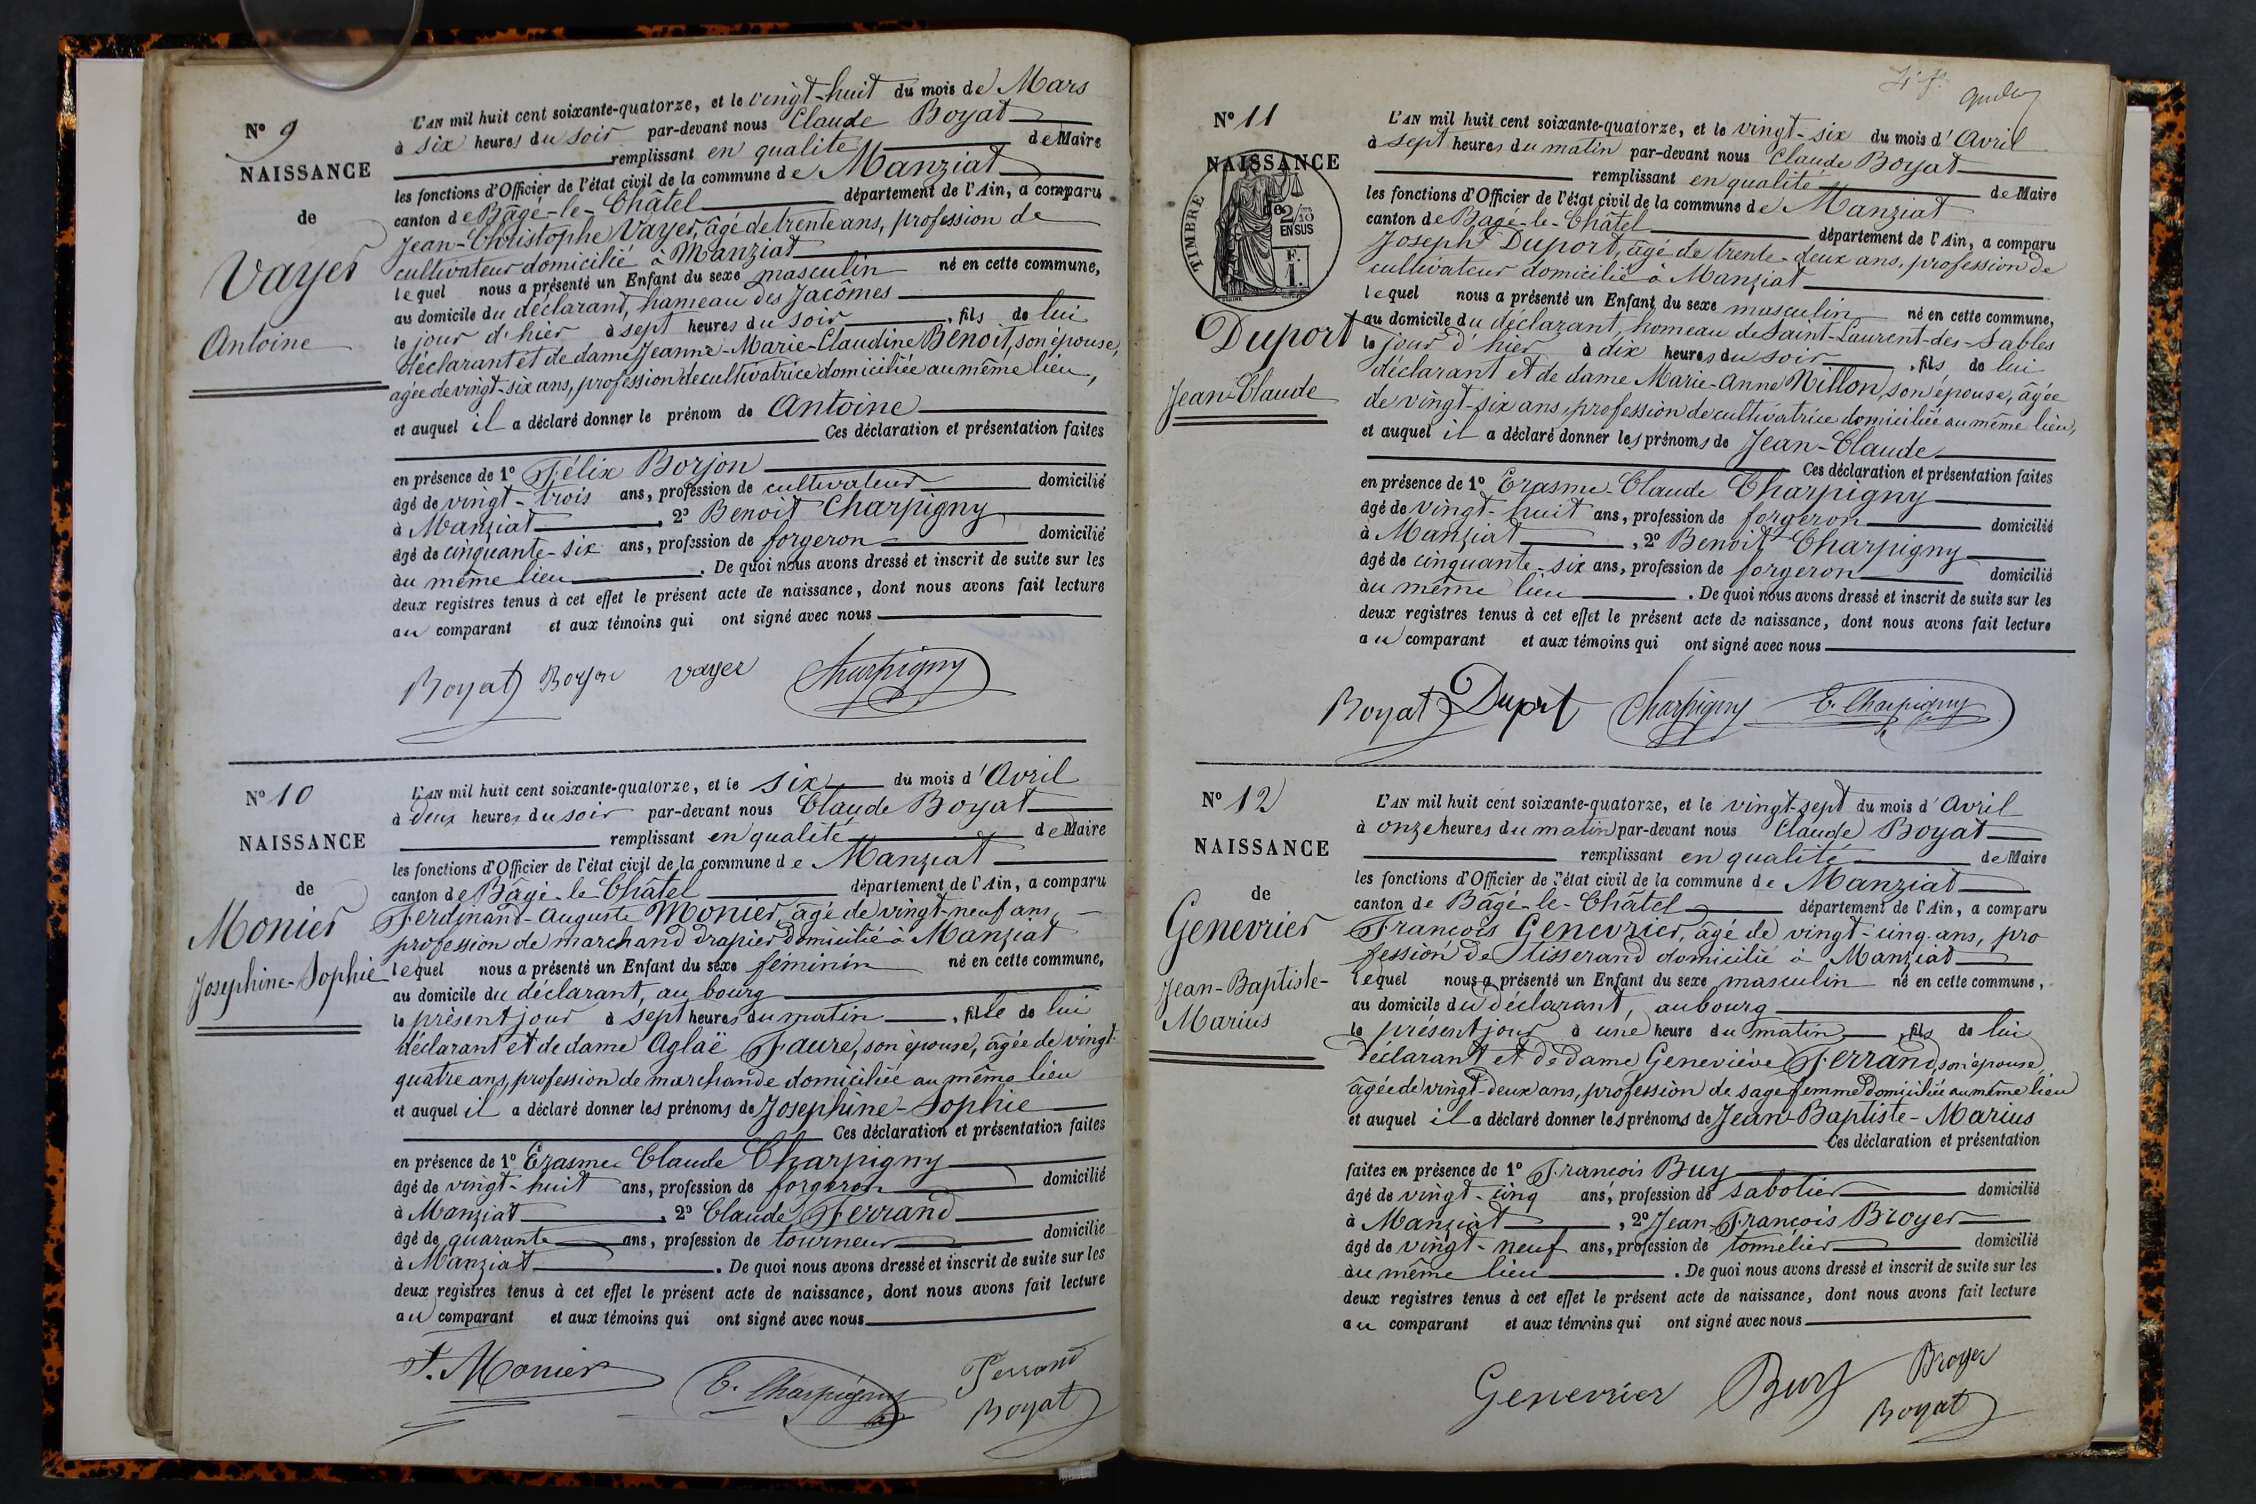 N° 9
NAISSANCE
de
Vayer
Antoine
L'AN mil huit cent soixante-quatorze, et le vingt-huit du mois de Mars
à six heures du soir par-devant nous Claude Boyat
remplissant en qualité de Maire
les fonctions d'Officier de l'état civil de la commune de Manziat
canton de Bâgé-le-Châtel département de l'Ain, a comparu
Jean-Christophe Vayer, âgé de trente ans, profession de
cultivateur domicilié à Manziat
lequel nous a présenté un Enfant du sexe masculin né en cette commune,
au domicile du déclarant, hameau des Jacômes
le jour d'hier à sept heures du soir, fils de lui
déclarant et de dame Jeanne-Marie-Claudine Benoit, son épouse,
agée de vingt-six ans, profession de cultivatrice domiciliée au même lieu,
et auquel il a déclaré donner le prénom de Antoine
Ces déclaration et présentation faites
en présence de 1° Félix Borjon
âgé de vingt-trois ans, profession de cultivateur domicilié
à Manziat, 2° Benoit Charpigny
âgé de cinquante-six ans, profession de forgeron domicilié
au même lieu. De quoi nous avons dressé et inscrit de suite sur les
deux registres tenus à cet effet le présent acte de naissance, dont nous avons fait lecture
au comparant et aux témoins qui ont signé avec nous
Boyat Borjon Vayer Charpigny
N° 10
NAISSANCE
de
Monier
Josephine-Sophie
L'AN mil huit cent soixante-quatorze, et le six du mois d'Avril
à deux heures du soir par-devant nous Claude Boyat
remplissant en qualité de Maire
les fonctions d'Officier de l'état civil de la commune de Manziat
canton de Bâgé-le-Châtel département de l'Ain, a comparu
Ferdinand-Auguste Monier, âgé de vingt-neuf ans,
profession de marchand drapier domicilié à Manziat
lequel nous a présenté un Enfant du sexe féminin né en cette commune,
au domicile du déclarant, au bourg
le présent jour à sept heures du matin, fille de lui
déclarant et de dame Aglaë Faure, son épouse, âgée de vingt-
quatre ans, profession de marchande domiciliée au même lieu
et auquel il a déclaré donner les prénoms de Josephine-Sophie
Ces déclaration et présentation faites
en présence de 1° Erasme Claude Charpigny
âgé de vingt-huit ans, profession de forgeron domicilié
à Manziat, 2° Claude Ferrand
âgé de quarante ans, profession de tourneur domicilié
à Manziat. De quoi nous avons dressé et inscrit de suite sur les
deux registres tenus à cet effet le présent acte de naissance, dont nous avons fait lecture
au comparant et aux témoins qui ont signé avec nous
F. Monier E. Charpigny Ferrand
Boyat
N° 11
NAISSANCE
TIMBRE
2/10
EN SUS
F.
1.
Duport
Jean-Claude
L'AN mil huit cent soixante-quatorze, et le vingt-six du mois d'Avril
à sept heures du matin par-devant nous Claude Boyat
remplissant en qualité de Maire
les fonctions d'Officier de l'état civil de la commune de Manziat
canton de Bagé-le-Châtel département de l'Ain, a comparu
Joseph Duport, âgé de trente-deux ans, profession de
cultivateur domicilié à Manziat
lequel nous a présenté un Enfant du sexe masculin né en cette commune,
au domicile du déclarant, hameau de Saint-Laurent-des-Sables
le jour d'hier à dix heures du soir, fils de lui
déclarant et de dame Marie-Anne Nillon, son épouse, âgée
de vingt-six ans, profession de cultivatrice domiciliée au même lieu,
et auquel il a déclaré donner les prénoms de Jean-Claude
Ces déclaration et présentation faites
en présence de 1° Erasme-Claude Charpigny
âgé de vingt-huit ans, profession de forgeron domicilié
à Manziat, 2° Benoit Charpigny
âgé de cinquante-six ans, profession de forgeron domicilié
au même lieu. De quoi nous avons dressé et inscrit de suite sur les
deux registres tenus à cet effet le présent acte de naissance, dont nous avons fait lecture
au comparant et aux témoins qui ont signé avec nous
Boyat Duport Charpigny E. Charpigny
N° 12
NAISSANCE
de
Genevrier
Jean-Baptiste-
Marius
L'AN mil huit cent soixante-quatorze, et le vingt-sept du mois d'Avril
à onze heures du matin par-devant nous Claude Boyat
remplissant en qualité de Maire
les fonctions d'Officier de l'état civil de la commune de Manziat
canton de Bâgé-le-Châtel département de l'Ain, a comparu
François Genevrier, âgé de vingt-cinq ans, pro
fession de tisserand domicilié à Manziat
lequel nous a présenté un Enfant du sexe masculin né en cette commune,
au domicile du déclarant, au bourg
le présent jour à une heure du matin, fils de lui
déclarant et de dame Geneviève Ferrand, son épouse,
âgée de vingt-deux ans, profession de sage femme domiciliée au même lieu
et auquel il a déclaré donner les prénoms de Jean-Baptiste-Marius
Ces déclaration et présentation
faites en présence de 1° François Buy
âgé de vingt-cinq ans, profession de sabotier domicilié
à Manziat, 2° Jean-François Broyer
âgé de vingt-neuf ans, profession de tonnelier domicilié
au même lieu. De quoi nous avons dressé et inscrit de suite sur les
deux registres tenus à cet effet le présent acte de naissance, dont nous avons fait lecture
au comparant et aux témoins qui ont signé avec nous
Genevrier Buy Broyer
Boyat